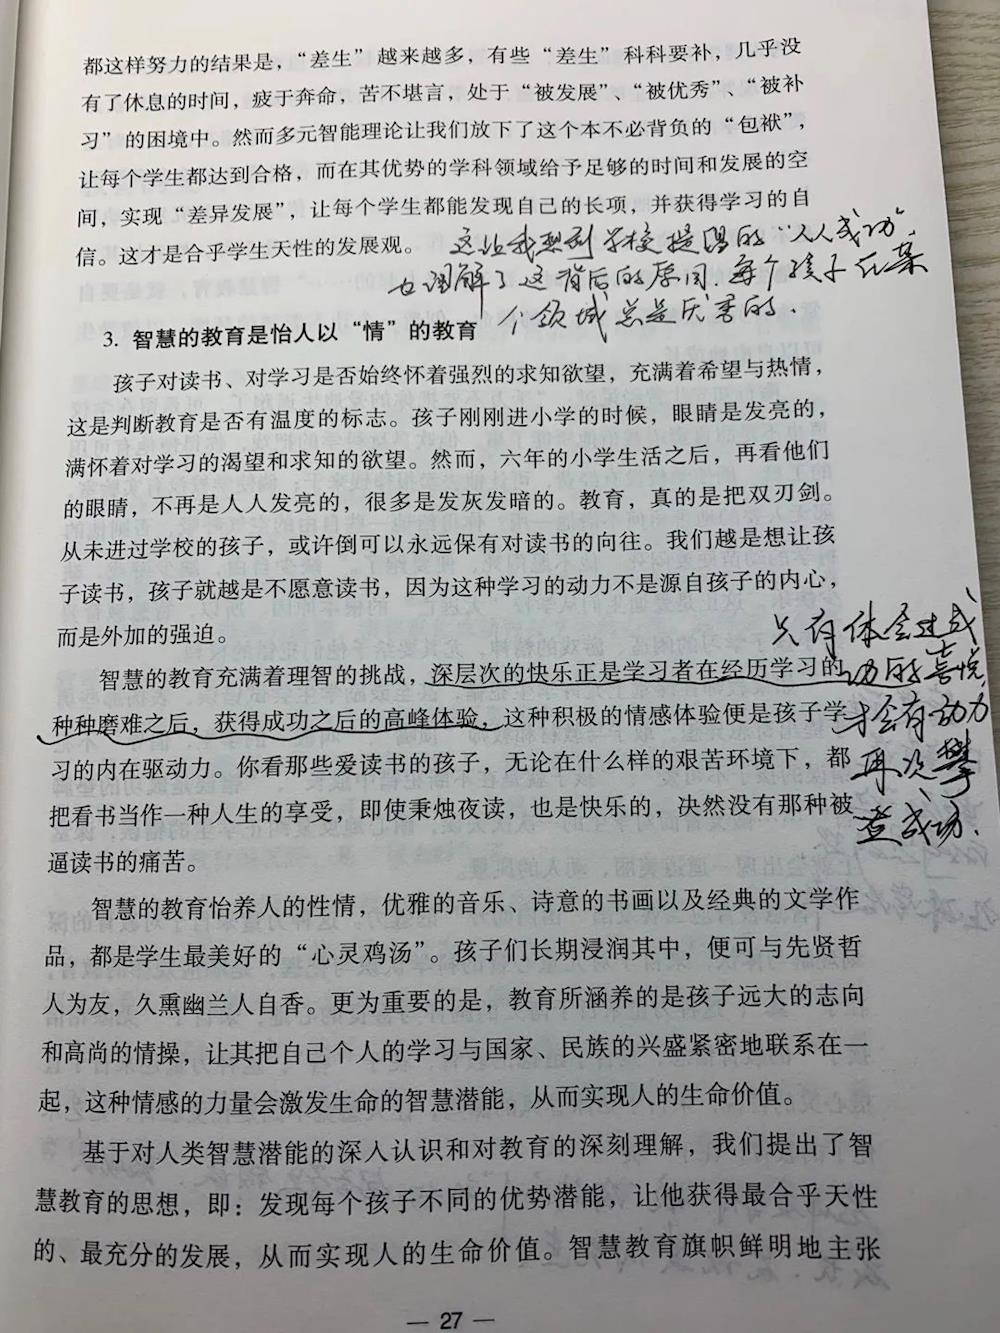 都这样努力的结果是，“差生”越来越多，有些“差生”科科要补，几乎没
有了休息的时间，疲于奔命，苦不堪言，处于“被发展”、“被优秀”、“被补
习”的困境中。然而多元智能理论让我们放下了这个本不必背负的“包袱”，
让每个学生都达到合格，而在其优势的学科领域给予足够的时间和发展的空
间，实现“差异发展”，让每个学生都能发现自己的长项，并获得学习的自
信。这才是合乎学生天性的发展观。
这让我想到学校提倡的“人人成功”
也理解了这背后的原因.每个孩子在某
个领域总是优秀的.
3. 智慧的教育是怡人以“情”的教育
孩子对读书、对学习是否始终怀着强烈的求知欲望，充满着希望与热情，
这是判断教育是否有温度的标志。孩子刚刚进小学的时候，眼睛是发亮的，
满怀着对学习的渴望和求知的欲望。然而，六年的小学生活之后，再看他们
的眼睛，不再是人人发亮的，很多是发灰发暗的。教育，真的是把双刃剑。
从未进过学校的孩子，或许倒可以永远保有对读书的向往。我们越是想让孩
子读书，孩子就越是不愿意读书，因为这种学习的动力不是源自孩子的内心，
而是外加的强迫。
智慧的教育充满着理智的挑战，深层次的快乐正是学习者在经历学习的
种种磨难之后，获得成功之后的高峰体验，这种积极的情感体验便是孩子学
习的内在驱动力。你看那些爱读书的孩子，无论在什么样的艰苦环境下，都
把看书当作一种人生的享受，即使秉烛夜读，也是快乐的，决然没有那种被
逼读书的痛苦。
只有体会过成
功的喜悦,
才会有动力
再次攀
登成功.
智慧的教育怡养人的性情，优雅的音乐、诗意的书画以及经典的文学作
品，都是学生最美好的“心灵鸡汤”。孩子们长期浸润其中，便可与先贤哲
人为友，久熏幽兰人自香。更为重要的是，教育所涵养的是孩子远大的志向
和高尚的情操，让其把自己个人的学习与国家、民族的兴盛紧密地联系在一
起，这种情感的力量会激发生命的智慧潜能，从而实现人的生命价值。
基于对人类智慧潜能的深入认识和对教育的深刻理解，我们提出了智
慧教育的思想，即：发现每个孩子不同的优势潜能，让他获得最合乎天性
的、最充分的发展，从而实现人的生命价值。智慧教育旗帜鲜明地主张
— 27 —